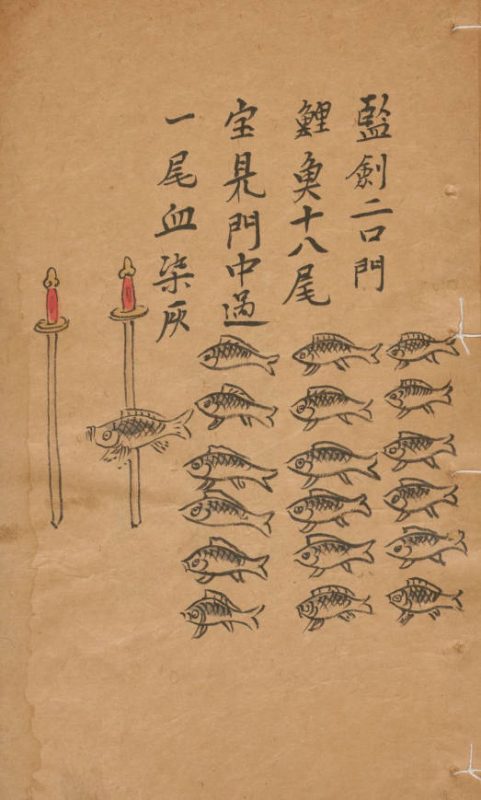 藍劍二口門
鯉魚十八尾
宝見門中過
一尾血染灰